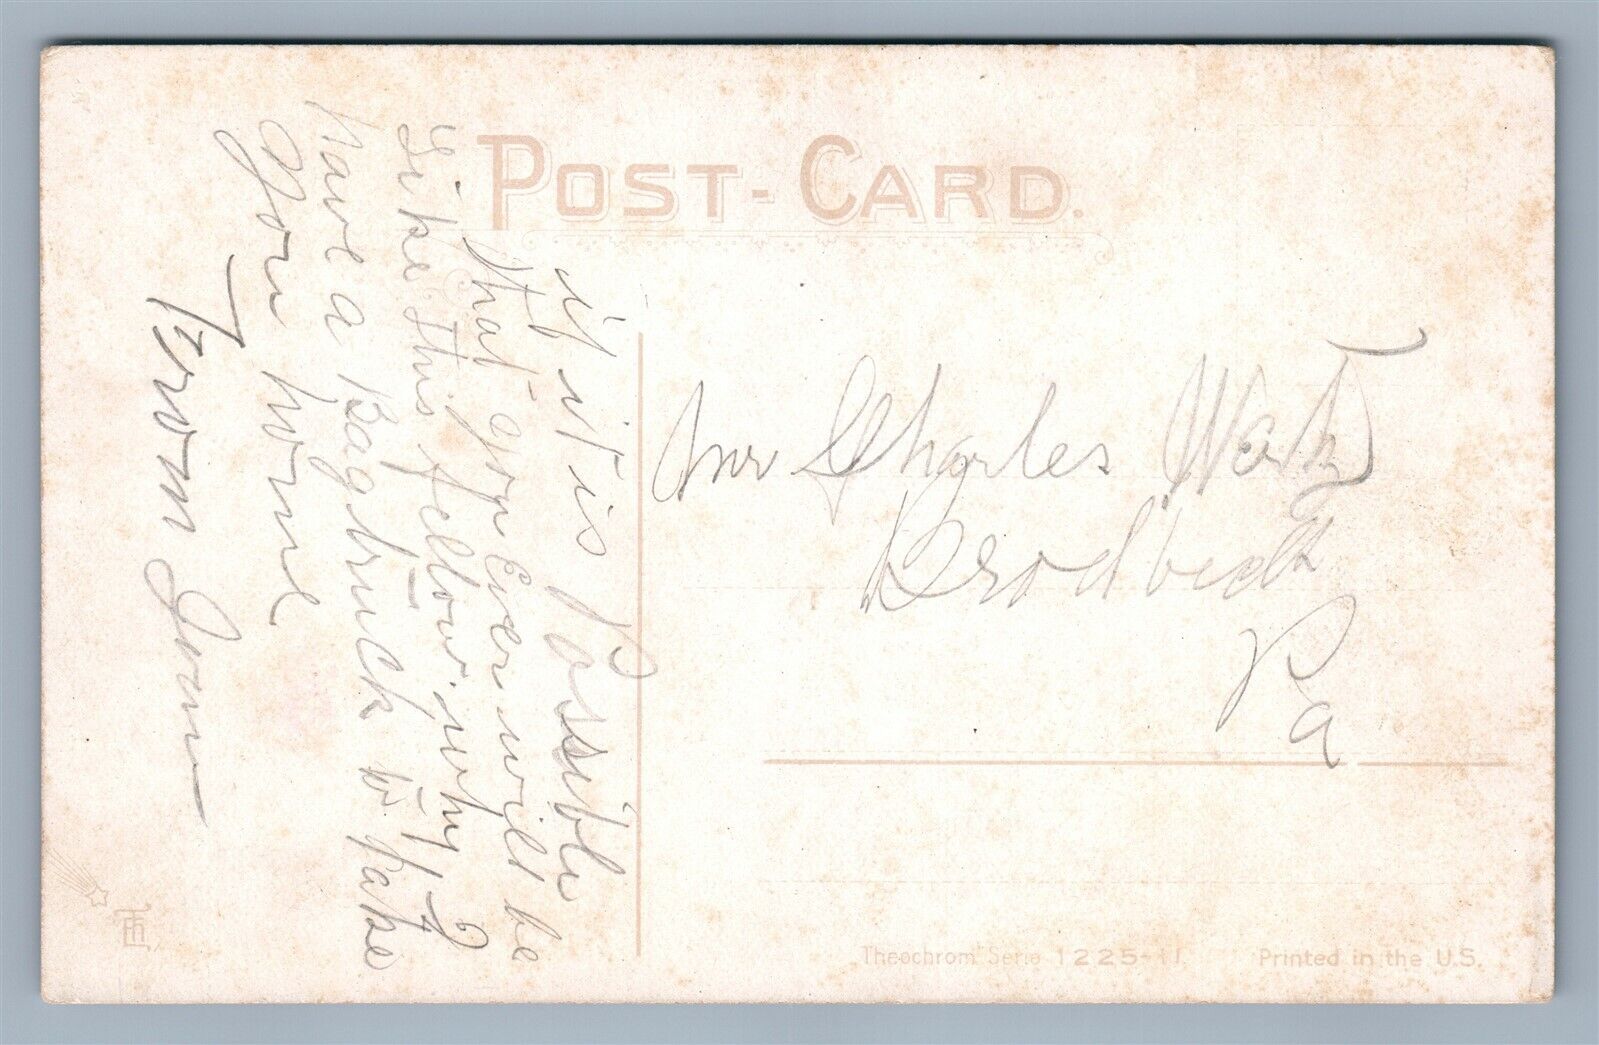 POST-CARD.
if it is Possible
that you Ever will be
Like this fellow. why I
have a Bagtruck to take
you home
From
Mr Charles
Brodbeck
Pa
Theochrom Serie 1225-11
Printed in the U.S.